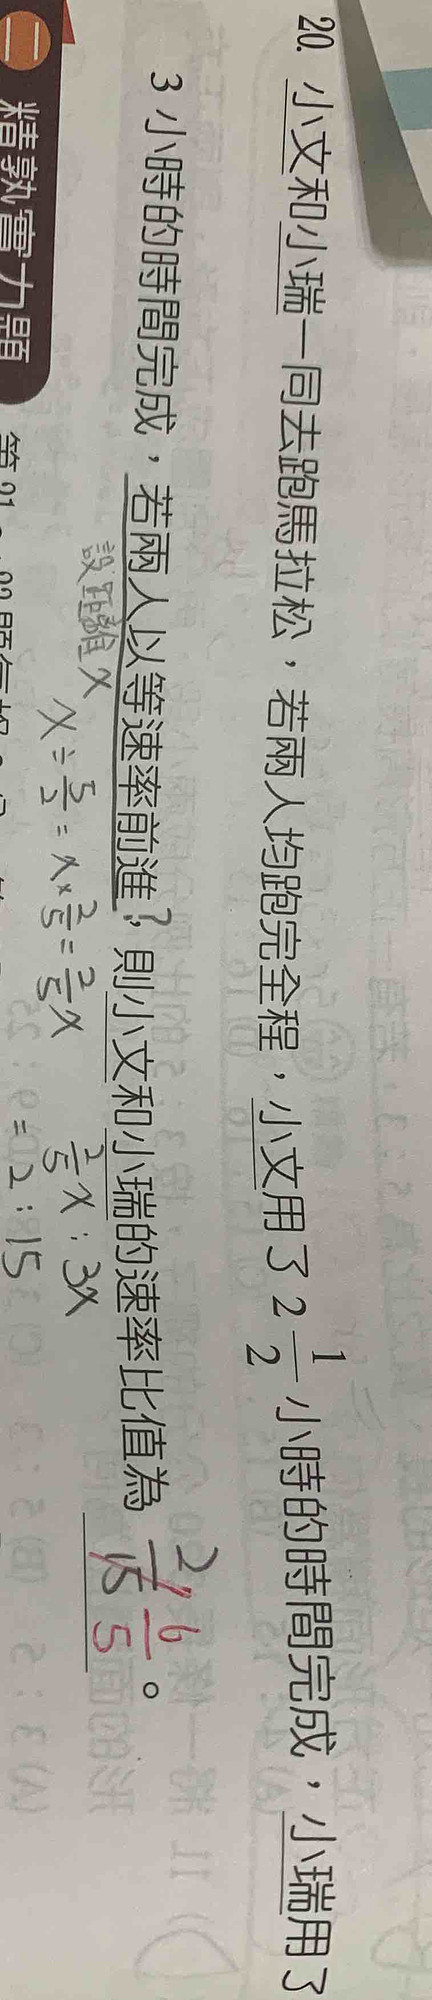 20. 小文和小瑞一同去跑馬拉松，若兩人均跑完全程，小文用了2 1/2小時的時間完成，小瑞用了
3小時的時間完成，若兩人以等速率前進?，則小文和小瑞的速率比值為 2/15 6/5 。
設距離 x
x ÷ 5/2 = x × 2/5 = 2/5 x
2/5 x : 3x
= 2 : 15
二 精熟實力題